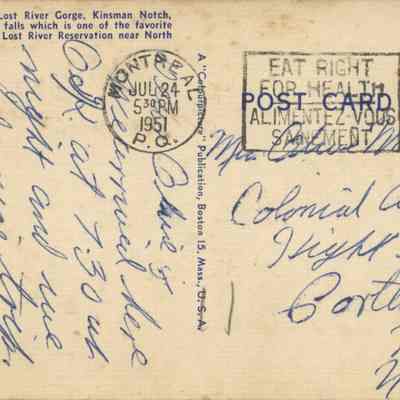 Lost River Gorge, Kinsman Notch,
falls which is one of the favorite
Lost River Reservation near North
MONTREAL
JUL 24
5 30 PM
1951
P.Q.
EAT RIGHT
FOR HEALTH
ALIMENTEZ-VOUS
SAINEMENT
POST CARD
A "Colourpicture" Publication, Boston 15, Mass., U.S.A.
arrived here
O.K. at 7:30 at
night and we
trip.
Mrs.
Colonial
Hight
Portl